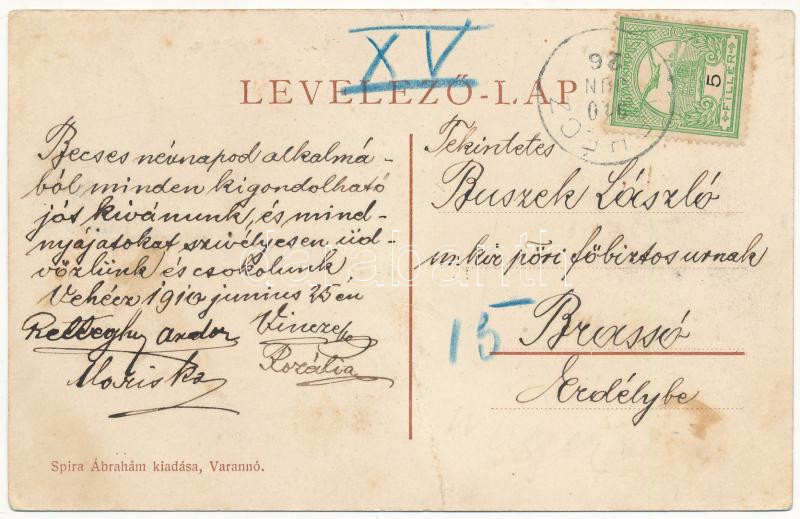 XV
LEVELEZŐ-LAP
5
FILLÉR
Becses névnapod alkalmá-
ból minden kigondolható
jót kivánunk, és mind-
nyájatokat szivélyesen üd-
vözlünk és csokolunk
Vehécz 1910 junius 25 én
Retteghy Andor
Vincze
Rozália
Mariska
Tekintetes
Buszek László
m. kir pöri főbiztos urnak
15
Brassó
Erdélybe
Spira Ábrahám kiadása, Varannó.
darabanth